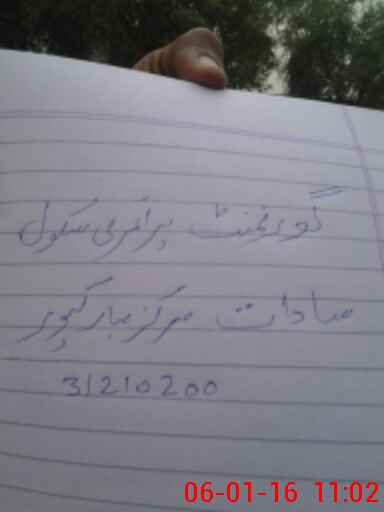 گورنمنٹ پرائمری سکول
سادات مرکز مبارکپور
31210200
06-01-16 11:02